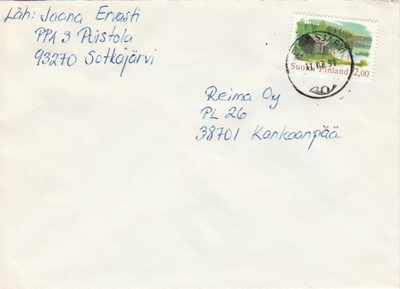 Läh: Jaana Ervasti
PPA 3 Puistola
93270 Sotkajärvi
Suomi Finland 2,00
Reima Oy
PL 26
38701 Kankaanpää